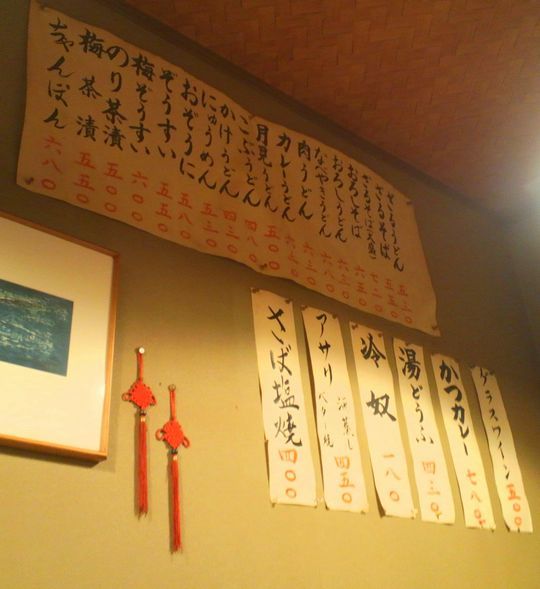 ざるうどん 五三〇
ざるそば 五五〇
ざるそば(大盛)
おろしそば
おろしうどん
なべやきうどん
肉うどん
カレーうどん
月見うどん 五〇〇
こぶうどん 四八〇
かけうどん 四三〇
にゅうめん 五三〇
おぞうに 五八〇
ぞうすい 五五〇
梅ぞうすい 六〇〇
のり茶漬 五五〇
梅茶漬 五五〇
ちゃんぽん 六八〇
グラスワイン 五〇〇
かつカレー 七八〇
湯どうふ 四三〇
冷奴 一八〇
アサリ 酒蒸し バター焼 四五〇
さば塩焼 四〇〇